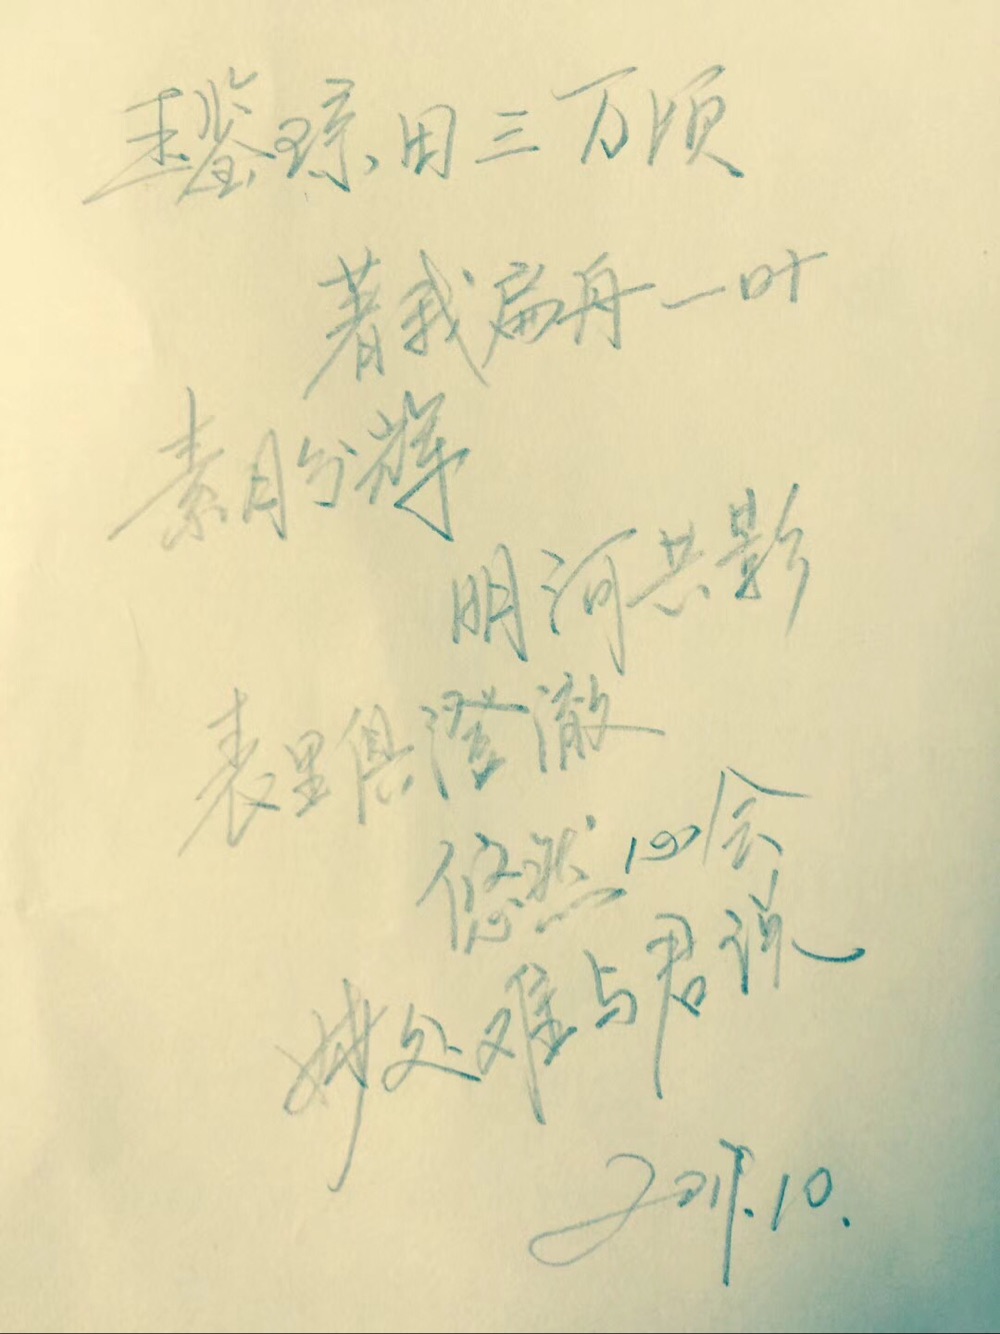 玉鉴琼田三万顷
着我扁舟一叶
素月分辉
明河共影
表里俱澄澈
悠然心会
妙处难与君说